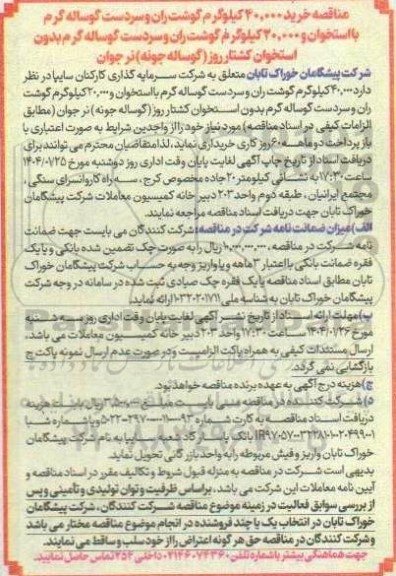 مناقصه خرید ۴۰,۰۰۰ کیلوگرم گوشت ران و سردست گوساله گرم
با استخوان و ۲۰,۰۰۰ کیلوگرم گوشت ران و سردست گوساله گرم بدون
استخوان کشتار روز (گوساله جونه) نر جوان
شرکت پیشگامان خوراک تابان متعلق به شرکت سرمایه گذاری کارکنان سایپا در نظر
دارد ۴۰,۰۰۰ کیلوگرم گوشت ران و سردست گوساله گرم با استخوان و ۲۰,۰۰۰ کیلوگرم گوشت
ران و سردست گوساله گرم بدون استخوان کشتار روز (گوساله جونه) نر جوان (مطابق
الزامات کیفی در اسناد مناقصه) مورد نیاز خود را از واجدین شرایط به صورت اعتباری با
باز پرداخت دو ماهه ۶۰ روز کاری خریداری نماید، لذا متقاضیان محترم می توانند برای
دریافت اسناد از تاریخ چاپ آگهی لغایت پایان وقت اداری روز دوشنبه مورخ ۱۴۰۴/۰۷/۲۵
ساعت ۱۷:۳۰ به نشانی کیلومتر ۲۰ جاده مخصوص کرج، سه راه کاروانسرای سنگی،
مجتمع ایرانیان، طبقه دوم واحد ۲۰۳ دبیر خانه کمیسیون معاملات شرکت پیشگامان
خوراک تابان جهت دریافت اسناد مناقصه مراجعه نمایند.
الف) میزان ضمانت نامه شرکت در مناقصه: شرکت کنندگان می بایست جهت ضمانت
نامه شرکت در مناقصه، ۱۰,۰۰۰,۰۰۰,۰۰۰ ریال را به صورت چک تضمین شده بانکی و یا یک
فقره ضمانت بانکی با اعتبار ۳ ماهه و یا واریز وجه به حساب شرکت پیشگامان خوراک
تابان مطابق اسناد مناقصه یا یک فقره چک صیادی ثبت شده در سامانه در وجه شرکت
پیشگامان خوراک تابان به شناسه ملی ۱۰۳۲۰۲۰۱۷۱۱ ارائه نماید.
پ) مهلت ارائه اسناد از تاریخ نشر آگهی لغایت پایان وقت اداری روز سه شنبه
مورخ ۱۴۰۴/۰۷/۲۶ ساعت ۱۷:۳۰ واحد ۲۰۳ دبیر خانه کمیسیون معاملات می باشد.
ارسال مستندات کیفی به همراه پاکت الزامیست و در صورت عدم ارسال نمونه پاکت ج
بازگشایی نمی گردد.
ج) هزینه درج آگهی به عهده برنده مناقصه خواهد بود.
د) شرکت کننده در مناقصه می بایست مبلغ ۳,۵۰۰,۰۰۰ ریال بابت هزینه
دریافت اسناد مناقصه به کارت شماره
بانک پاسارگاد شعبه سایپا به نام شرکت پیشگامان
خوراک تابان واریز و فیش مربوطه را به واحد بازرگانی تحویل نماید.
بدیهی است شرکت در مناقصه به منزله قبول شروط و تکالیف مقرر در اسناد مناقصه و
آیین نامه معاملات این شرکت می باشد، براساس ظرفیت و توان تولیدی و تامینی و پس
از بررسی سوابق فعالیت در زمینه موضوع مناقصه شرکت کنندگان، شرکت پیشگامان
خوراک تابان در انتخاب یک یا چند فروشنده در انجام موضوع مناقصه مختار می باشد
و شرکت کنندگان در مناقصه حق هر گونه اعتراض را از خود سلب و ساقط می نمایند.
جهت هماهنگی بیشتر با شماره تلفن ۰۲۱۴۶۰۷۴۳۶۰ داخلی ۲۵۲ تماس حاصل نمایید.